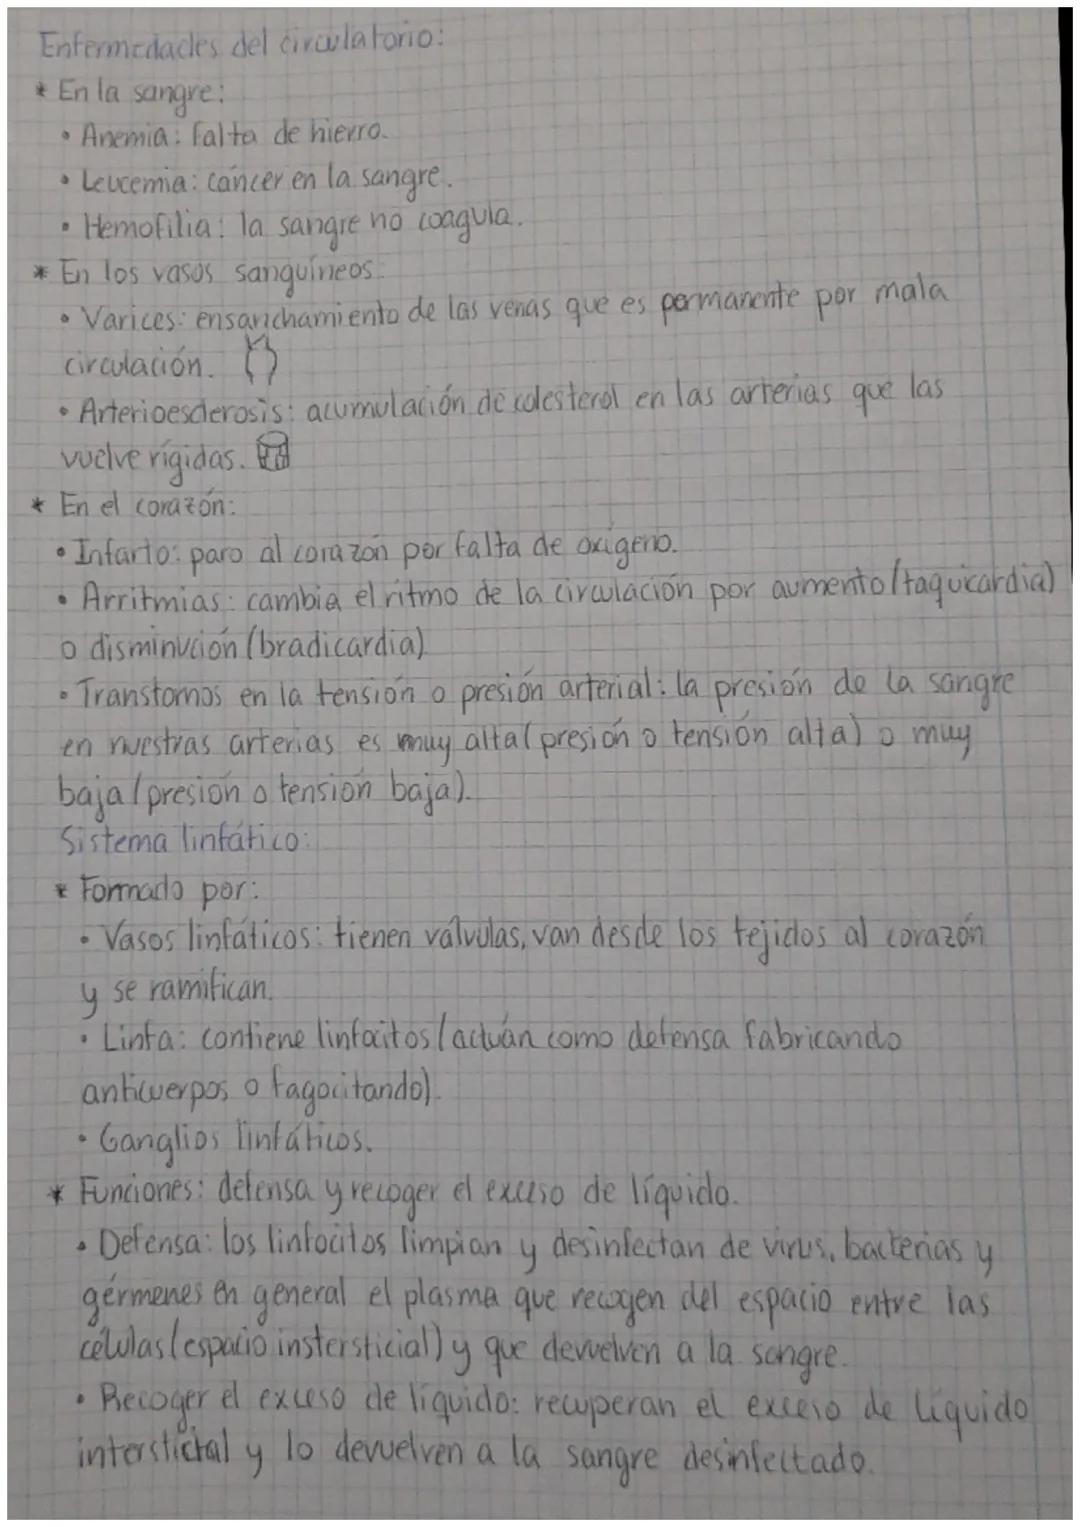 Enfermedades del circulatorio:
* En la sangre:
• Anemia: falta de hierro.
• Leucemia: cáncer en la sangre.
• Hemofilia: la sangre no coagula.
* En los vasos sanguíneos:
• Varices: ensanchamiento de las venas que es permanente por mala
circulación.
• Arterioesclerosis: acumulación de colesterol en las arterias que las
vuelve rígidas.
* En el corazón:
• Infarto: paro al corazón por falta de oxígeno.
• Arritmias: cambia el ritmo de la circulación por aumento (taquicardia)
o disminución (bradicardia)
• Transtornos en la tensión o presión arterial: la presión de la sangre
en nuestras arterias es muy alta (presión o tensión alta) o muy
baja (presión o tensión baja).
Sistema linfático:
* Formado por:
• Vasos linfáticos: tienen válvulas, van desde los tejidos al corazón
y se ramifican.
• Linfa: contiene linfocitos (actúan como defensa fabricando
anticuerpos o fagocitando).
• Ganglios linfáticos.
* Funciones: defensa y recoger el exceso de líquido.
• Defensa: los linfocitos limpian y desinfectan de virus, bacterias y
gérmenes en general el plasma que recogen del espacio entre las
células (espacio instersticial) y que devuelven a la sangre.
• Recoger el exceso de líquido: recuperan el exceso de líquido
intersticial y lo devuelven a la sangre desinfectado.